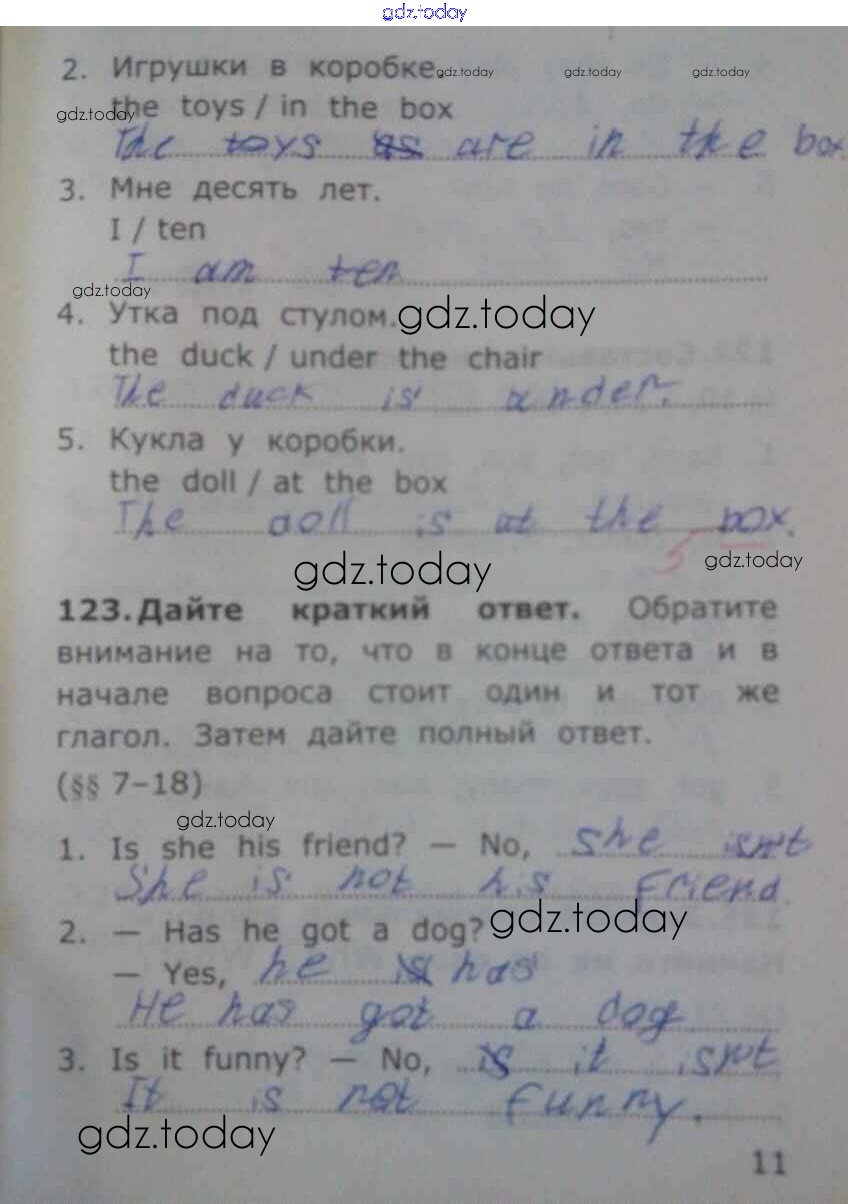 gdz.today
2. Игрушки в коробке.
gdz.today gdz.today gdz.today
gdz.today
the toys / in the box
The toys is are in the box.
3. Мне десять лет.
I / ten
I am ten
gdz.today
4. Утка под стулом.
gdz.today
the duck / under the chair
The duck is under.
5. Кукла у коробки.
the doll / at the box
The doll is at the box.
gdz.today
gdz.today
123. Дайте краткий ответ. Обратите
внимание на то, что в конце ответа и в
начале вопроса стоит один и тот же
глагол. Затем дайте полный ответ.
(§§ 7–18)
gdz.today
1. Is she his friend? — No, she isn't
She is not his friend.
2. — Has he got a dog?
gdz.today
— Yes, he is has
He has got a dog
3. Is it funny? — No, is it isn't
It is not funny.
gdz.today
11